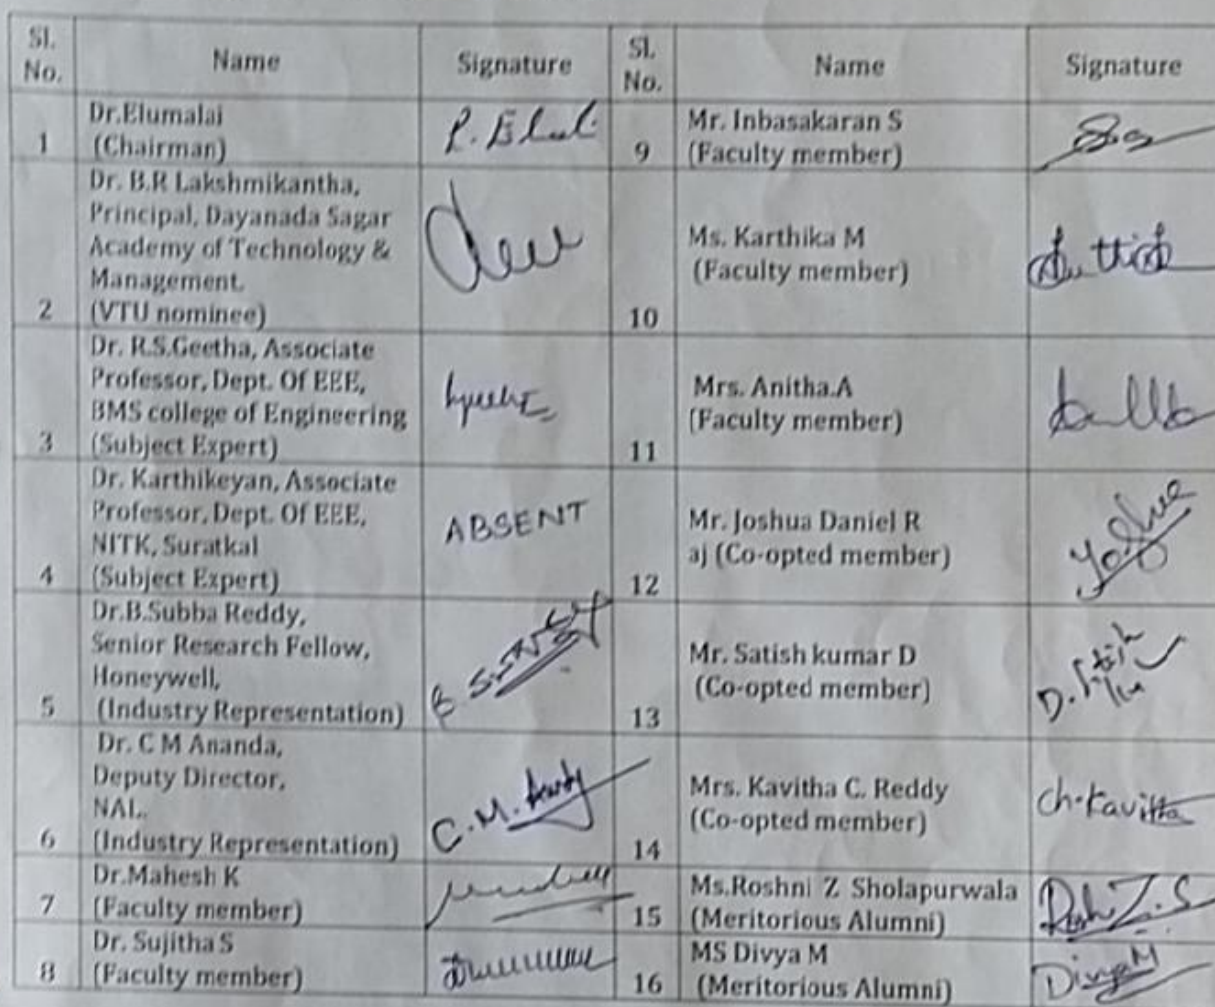 Sl. No. Name Signature Sl. No. Name Signature
1 Dr.Elumalai
(Chairman)
P. Elul
9 Mr. Inbasakaran S
(Faculty member)
2 Dr. B.R Lakshmikantha,
Principal, Dayanada Sagar
Academy of Technology &
Management.
(VTU nominee)
10 Ms. Karthika M
(Faculty member)
3 Dr. R.S.Geetha, Associate
Professor, Dept. Of EEE,
BMS college of Engineering
(Subject Expert)
11 Mrs. Anitha.A
(Faculty member)
4 Dr. Karthikeyan, Associate
Professor, Dept. Of EEE,
NITK, Suratkal
(Subject Expert)
ABSENT
12 Mr. Joshua Daniel R
aj (Co-opted member)
5 Dr.B.Subba Reddy,
Senior Research Fellow,
Honeywell,
(Industry Representation)
13 Mr. Satish kumar D
(Co-opted member)
6 Dr. C M Ananda,
Deputy Director,
NAL.
(Industry Representation)
C.M.
14 Mrs. Kavitha C. Reddy
(Co-opted member)
Ch. Kavitha
7 Dr.Mahesh K
(Faculty member)
15 Ms.Roshni Z Sholapurwala
(Meritorious Alumni)
8 Dr. Sujitha S
(Faculty member)
16 MS Divya M
(Meritorious Alumni)
Divya M